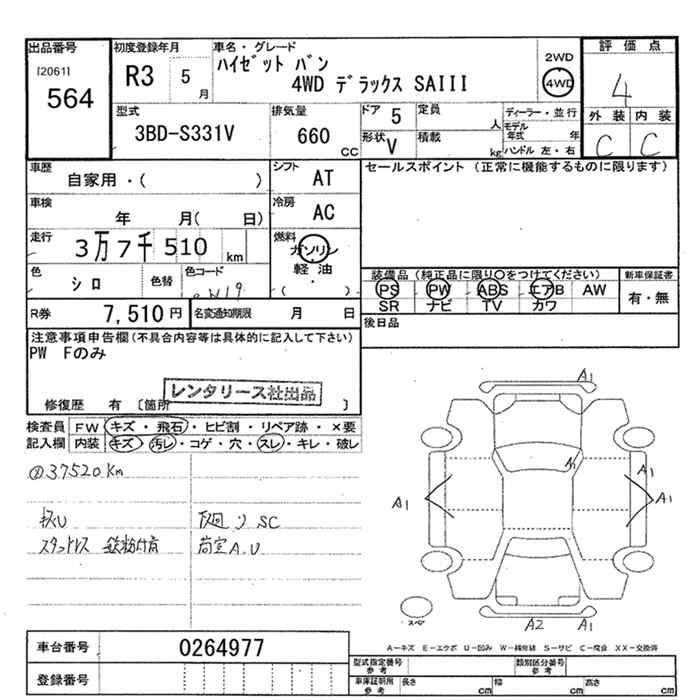 出品番号
[2061]
564
初度登録年月
R3 5 月
車名・グレード
ハイゼット バン
4WD デラックス SAIII
2WD
4WD
評価点
4
外装 内装
C C
型式
3BD-S331V
排気量
660 CC
ドア 5
形状 V
定員 人
積載 kg
ディーラー・並行
モデル年式 年
ハンドル 左・右
車歴
自家用・( )
シフト
AT
車検
年 月( 日)
冷房
AC
走行
3万7千510 km
燃料
ガソリン
軽油
・
( )
色
シロ
色替
色コード
W19
R券
7,510円
名変通知期限
月 日
セールスポイント (正常に機能するものに限ります)
装備品(純正品に限り○をつけてください)
PS PW ABS エアB AW
SR ナビ TV カワ
新車保証書
有・無
後日品
注意事項申告欄(不具合内容等は具体的に記入して下さい)
PW Fのみ
レンタリース社出品
修復歴 有 [箇所 ]
検査員記入欄
FW キズ・飛石・ヒビ割・リペア跡・×要
内装 キズ・汚レ・コゲ・穴・スレ・キレ・破レ
37520km
SC
荷室A.U
A1
A1
A1
A1
A1
A2 A1
スペア
A-キズ E-エクボ U-凹み W-補修跡 S-サビ C-腐食 XX-交換済
車台番号
0264977
登録番号
型式指定番号
参考
類別区分番号
参考
車庫証明用
参考
長さ cm
幅 cm
高さ cm